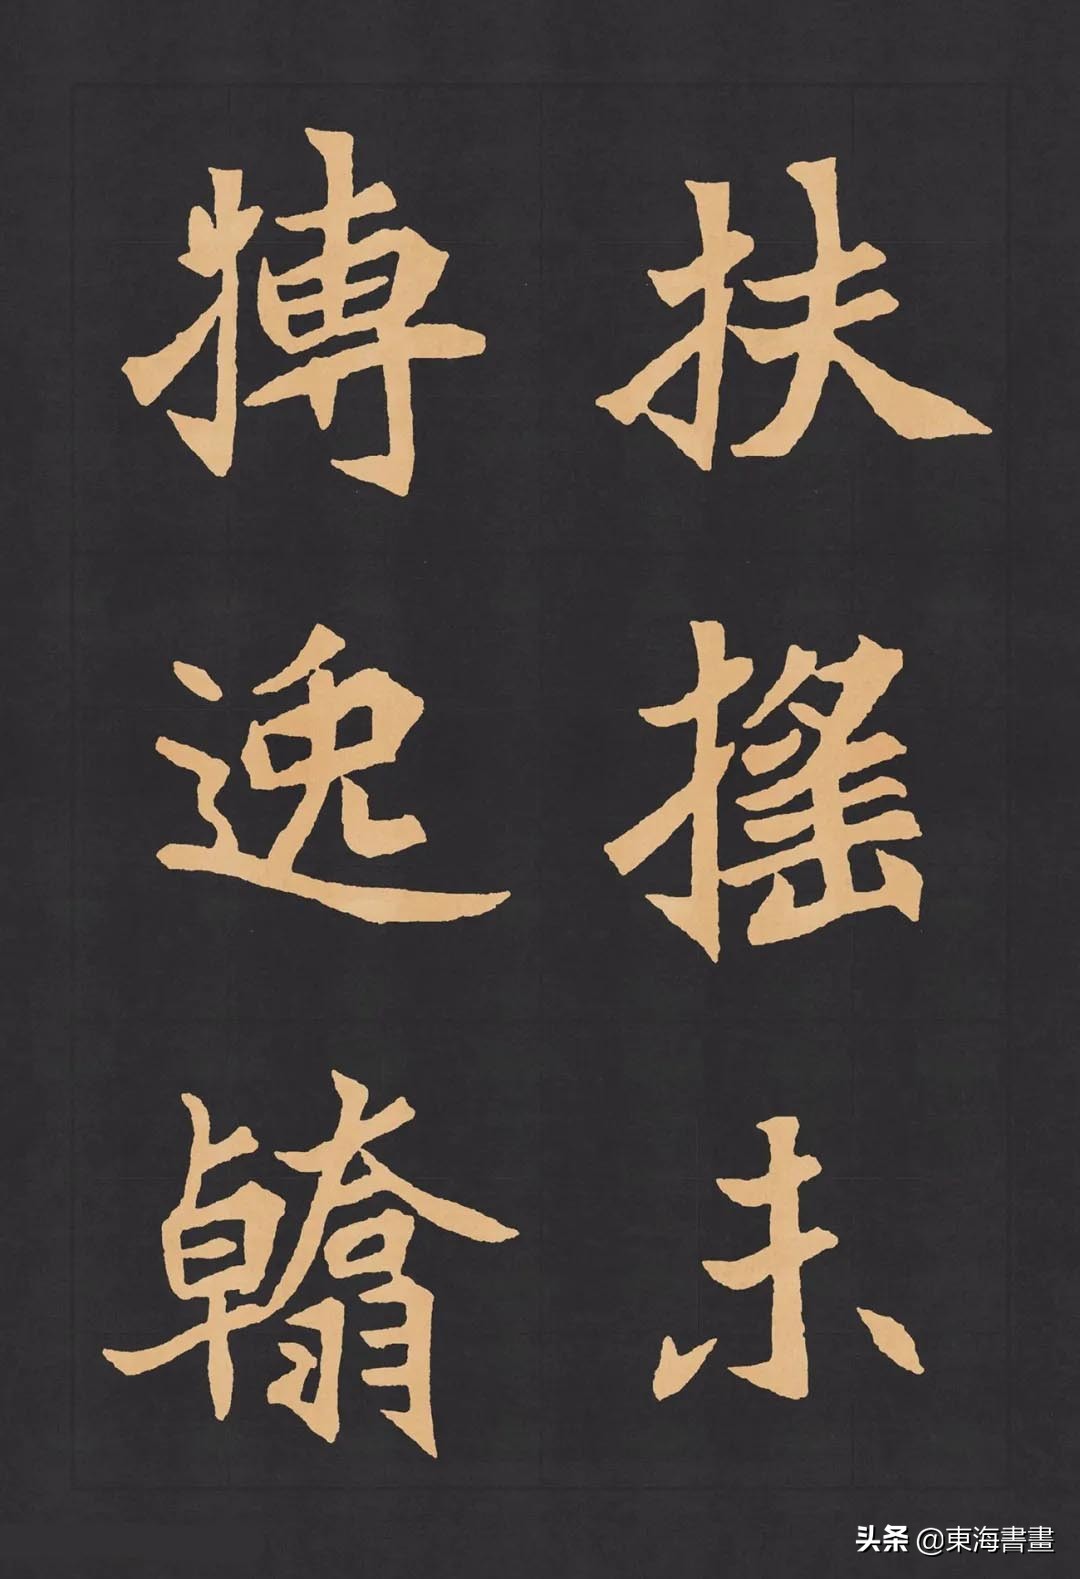 扶搖未
摶逸翰
头条 @東海書畫